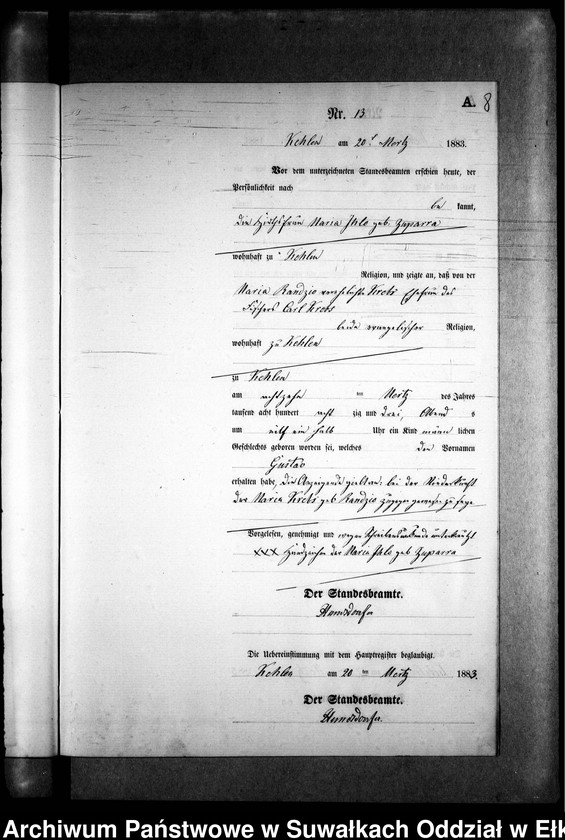 A. 8
Nr. 13.
Kehlen am 20t März 1883.
Vor dem unterzeichneten Standesbeamten erschien heute, der
Persönlichkeit nach
be kannt,
die Maria geb. Zuparra
wohnhaft zu Kehlen
Religion, und zeigte an, daß von der
Maria Randzio verehelichte Krebs Ehefrau des
Fischers Carl Krebs
beide evangelischer Religion,
wohnhaft zu Kehlen
zu Kehlen
am achtzehn ten März des Jahres
tausend acht hundert acht zig und drei, Abend s
um ein halb Uhr ein Kind männ lichen
Geschlechts geboren worden sei, welches den Vornamen
Gustav
erhalten habe, die Anzeigende bei der Niederkunft
der Maria Krebs geb Randzio zugegen gewesen zu sein
Vorgelesen, genehmigt und wegen
xxx Handzeichen der Maria geb Zuparra
Der Standesbeamte.
Die Uebereinstimmung mit dem Hauptregister beglaubigt.
Kehlen am 20 ten März 1883.
Der Standesbeamte.
Archiwum Państwowe w Suwałkach Oddział w Ełk